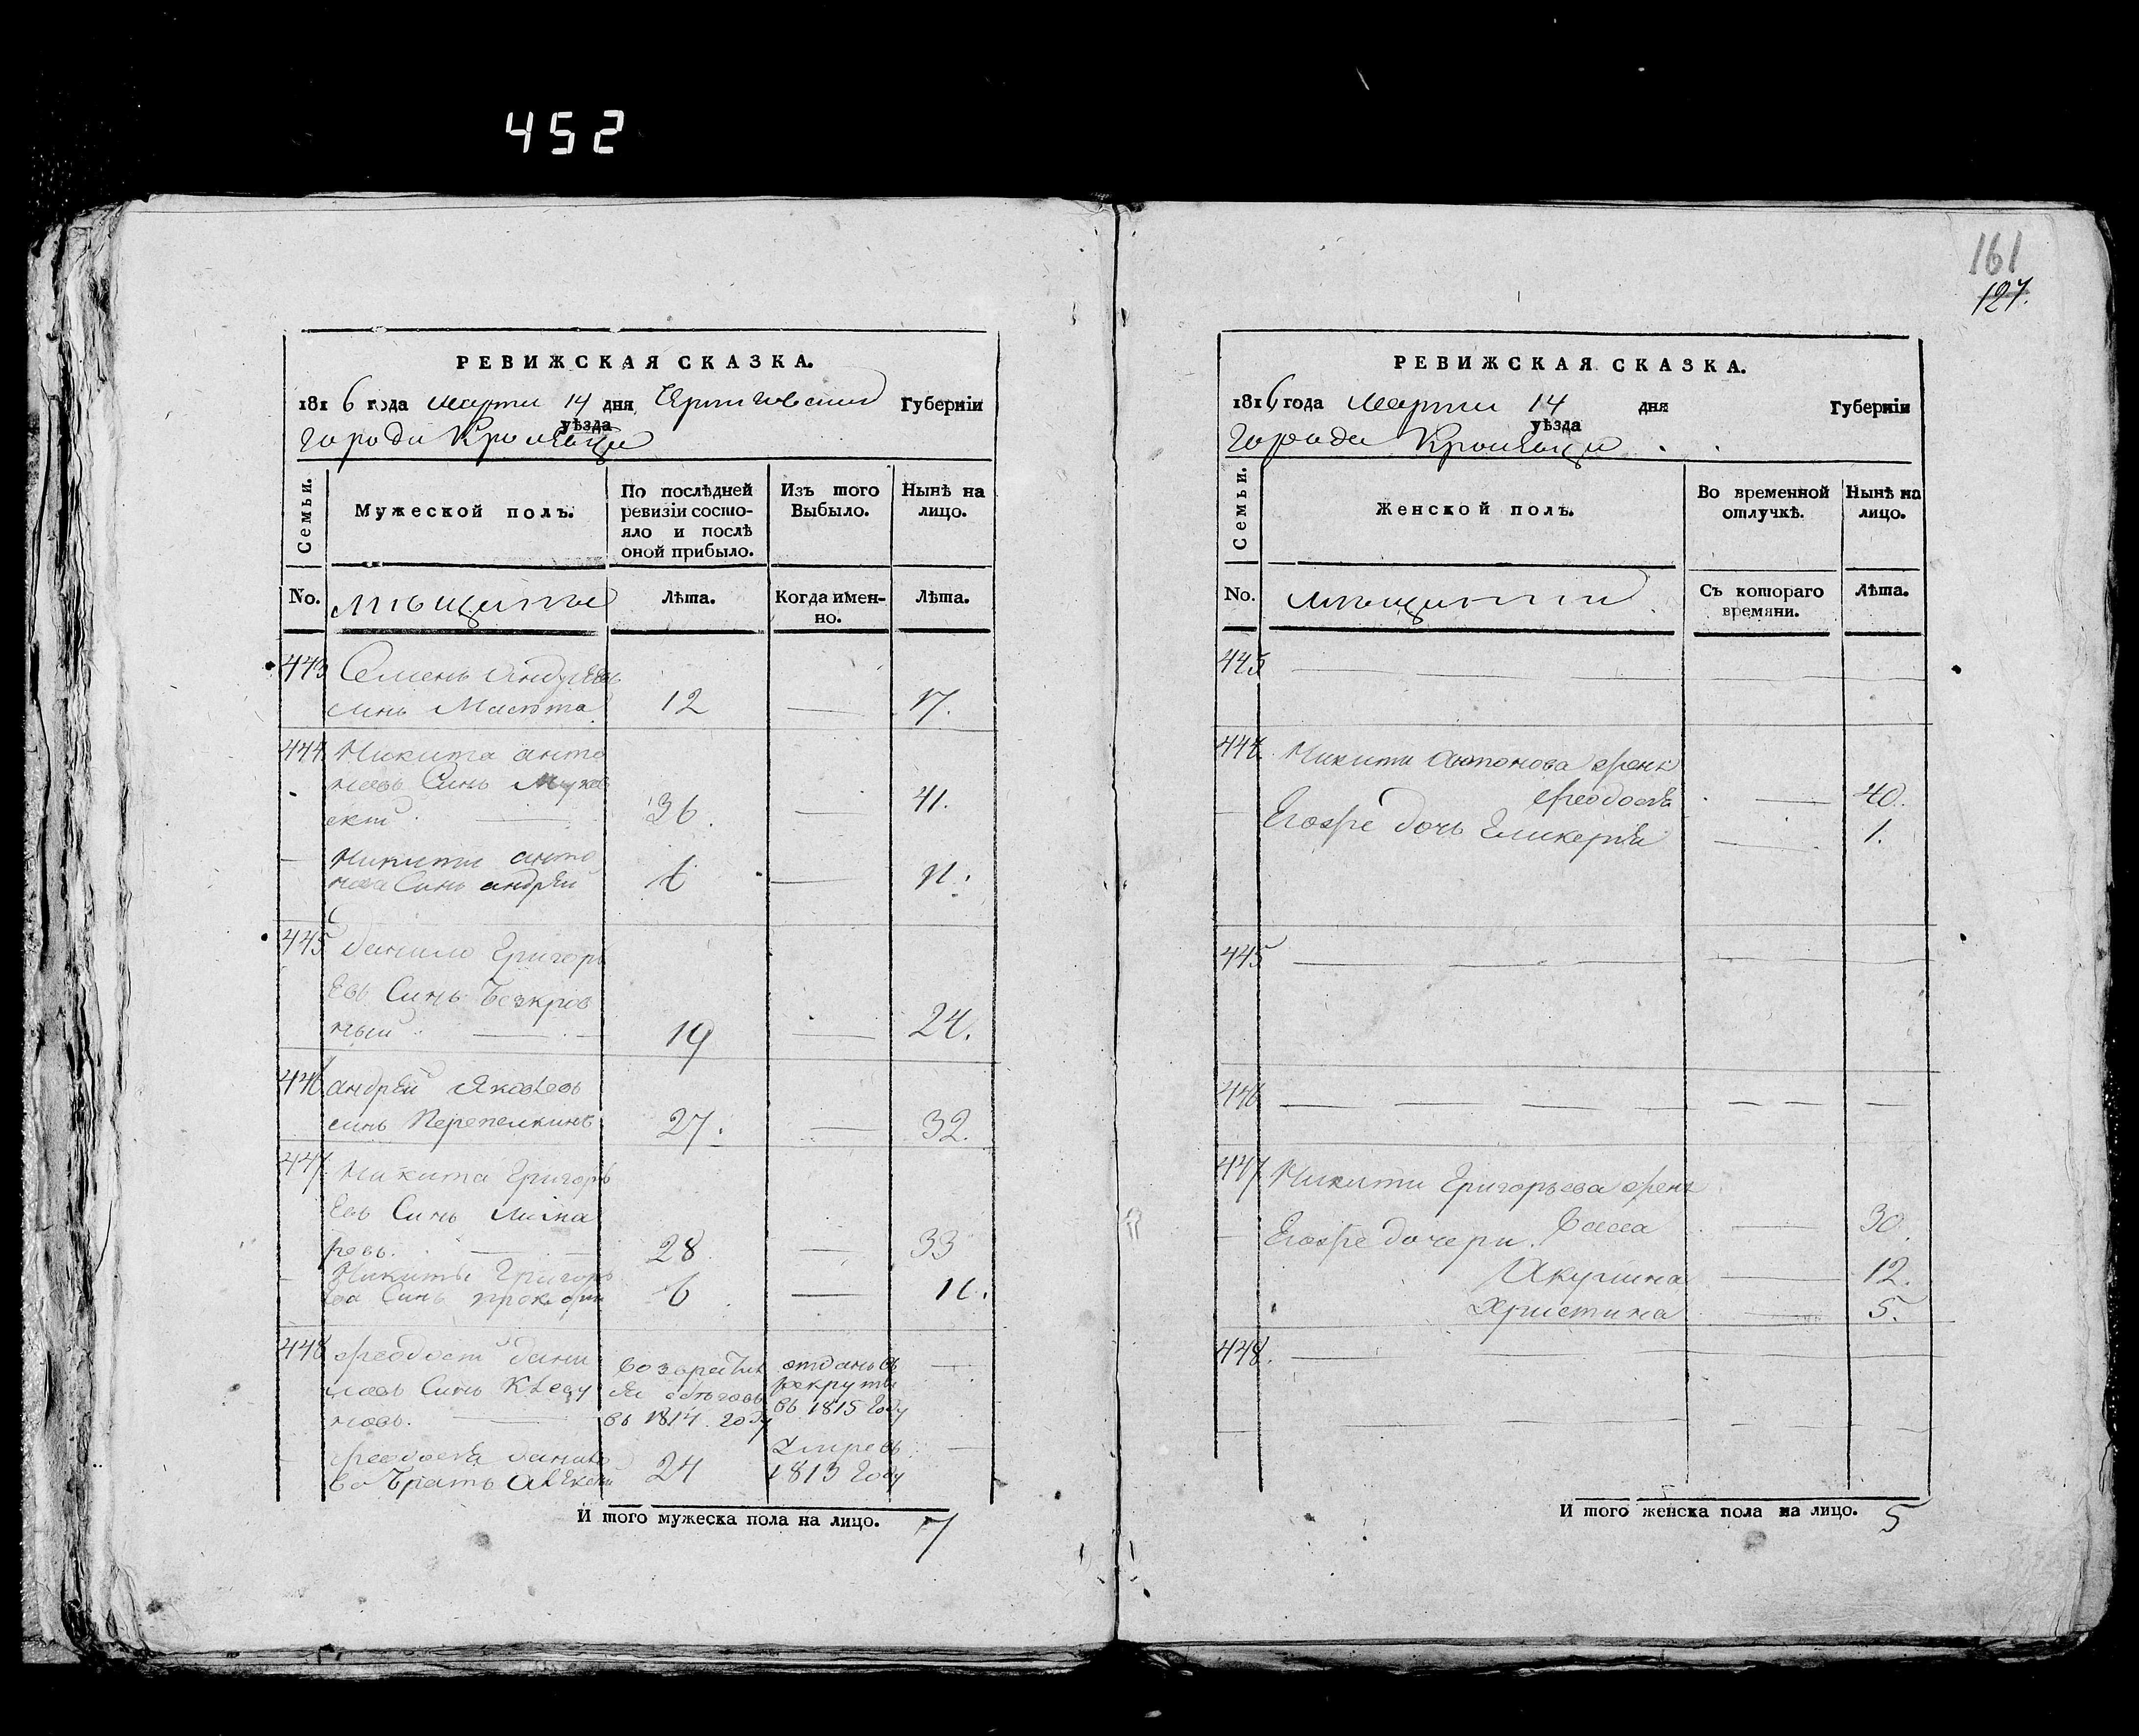 452
РЕВИЖСКАЯ СКАЗКА.
1816 года марта 14 дня Черниговской Губерніи
уѣзда
города Кролевца
Семьи.
Мужеской полъ.
По послѣдней ревизіи состо-
яло и послѣ оной прибыло.
Изъ того Выбыло.
Нынѣ на лицо.
No.
мѣщане
Лѣта.
Когда имен-
но.
Лѣта.
443
Семенъ
синъ 12 — 17.
444 Никита анто
новъ Синъ
ский — 36. — 41.
— Никиты анто
нова Синъ андрей 6 — 11.
445 Данило Григорь
евъ Синъ Безкров
ный — 19 — 24.
446 андрей Яковлевъ
синъ Перепелкинъ 27. — 32.
447 Никита Григорь
евъ Синъ
ровъ. — 28 — 33
— Никиты Григорь
ева Синъ прокофий 6 — 11.
448 феодосий Дани
ловъ Синъ
новъ. —
возвратил
ся з бѣговъ
въ 1814 году
отданъ въ
рекруты
въ 1815 году
—
— феодосия Данило
ва Братъ алексей 24
умре въ
1813 году
—
И того мужеска пола на лицо. 7
161
127.
РЕВИЖСКАЯ СКАЗКА.
1816 года Марта 14 дня Губерніи
уѣзда
города Кролевца
Семьи.
Женской полъ.
Во временной отлучкѣ.
Нынѣ на лицо.
No.
мѣщанки
Съ котораго времяни.
Лѣта.
443 — — — — —
444. Никиты антонова жена
феодосия — 40.
— Егожъ дочь Гликерия — 1.
445 — — — — —
446 — — — — — — —
447 Никиты Григорьева жена
Васса — 30.
— Егожъ дочери.
Акулина — 12.
Христина — 5.
448. — — — — —
— — — —
И того женска пола на лицо. 5